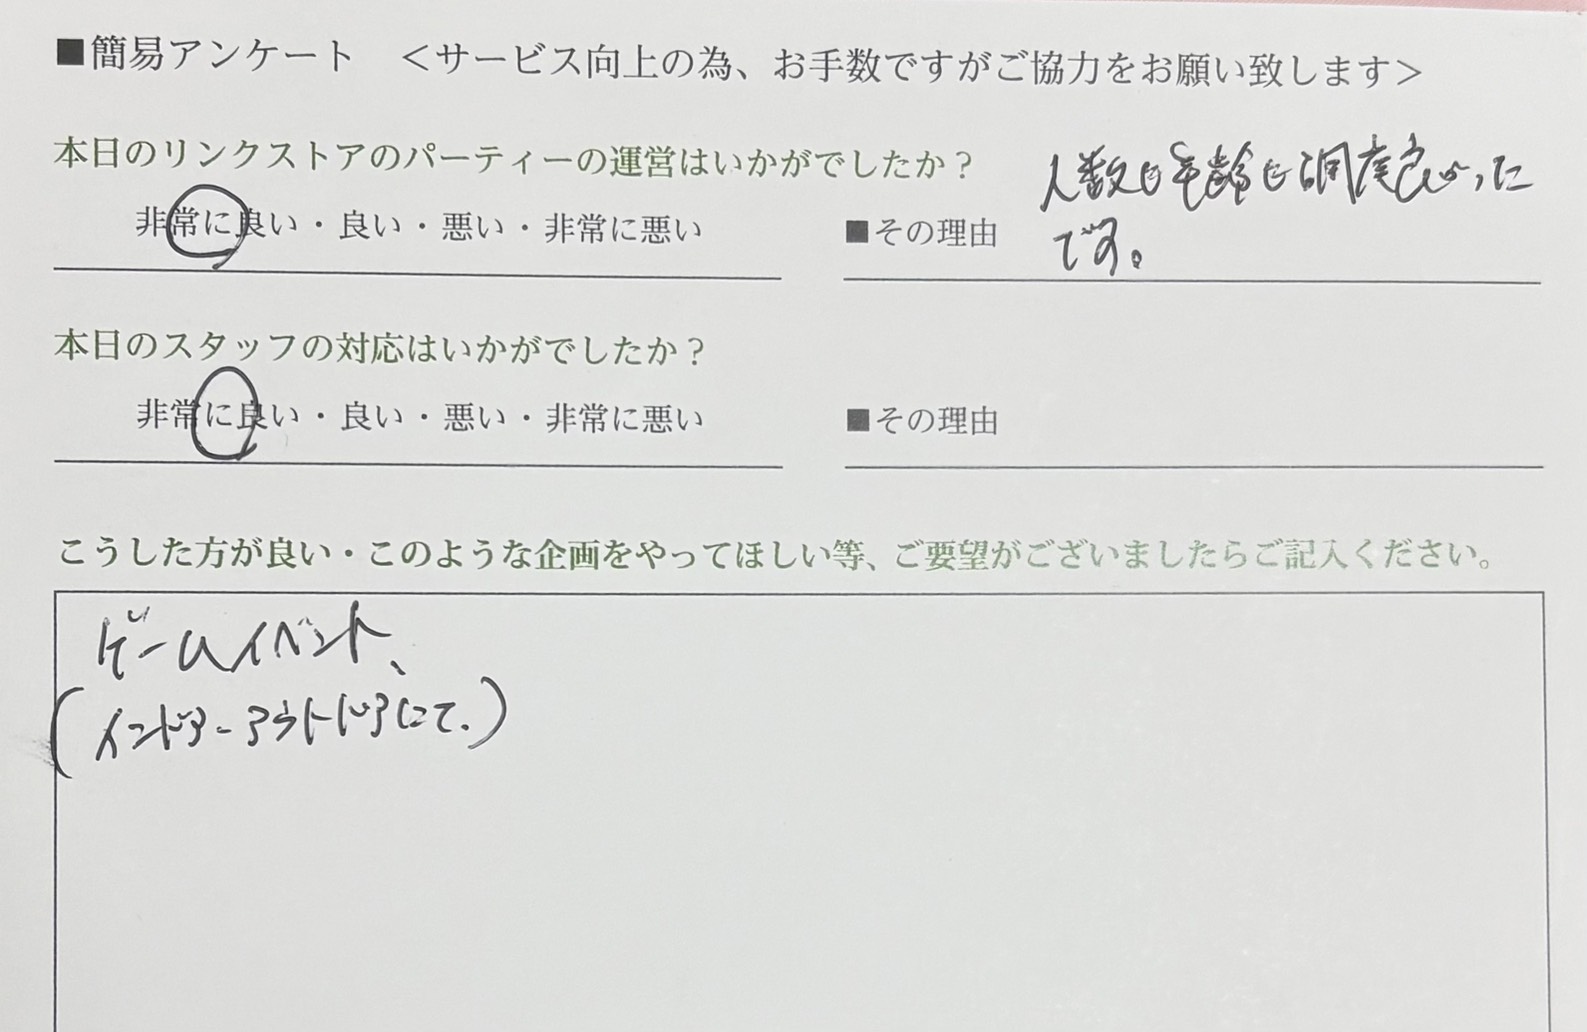 ■簡易アンケート　＜サービス向上の為、お手数ですがご協力をお願い致します＞
本日のリンクストアのパーティーの運営はいかがでしたか？
非常に良い・良い・悪い・非常に悪い
■その理由
人数も年齢も調度良かった
です。
本日のスタッフの対応はいかがでしたか？
非常に良い・良い・悪い・非常に悪い
■その理由
こうした方が良い・このような企画をやってほしい等、ご要望がございましたらご記入ください。
ゲームイベント、
(インドアーアウトドアにて.)